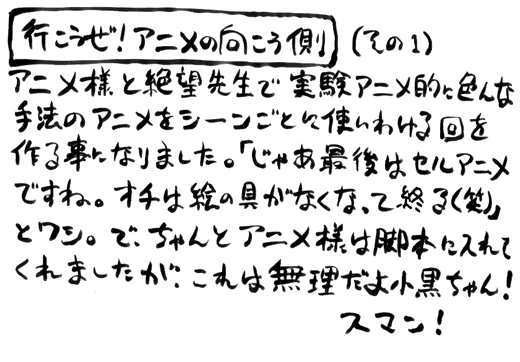 行こうぜ!アニメの向こう側 (その1)
アニメ様と絶望先生で実験アニメ的に色んな
手法のアニメをシーンごとに使いわける回を
作る事になりました。「じゃあ最後はセルアニメ
ですね。オチは絵の具がなくなって終る(笑)」
とワシ。で、ちゃんとアニメ様は脚本に入れて
くれましたが、これは無理だよ小黒ちゃん!
スマン!